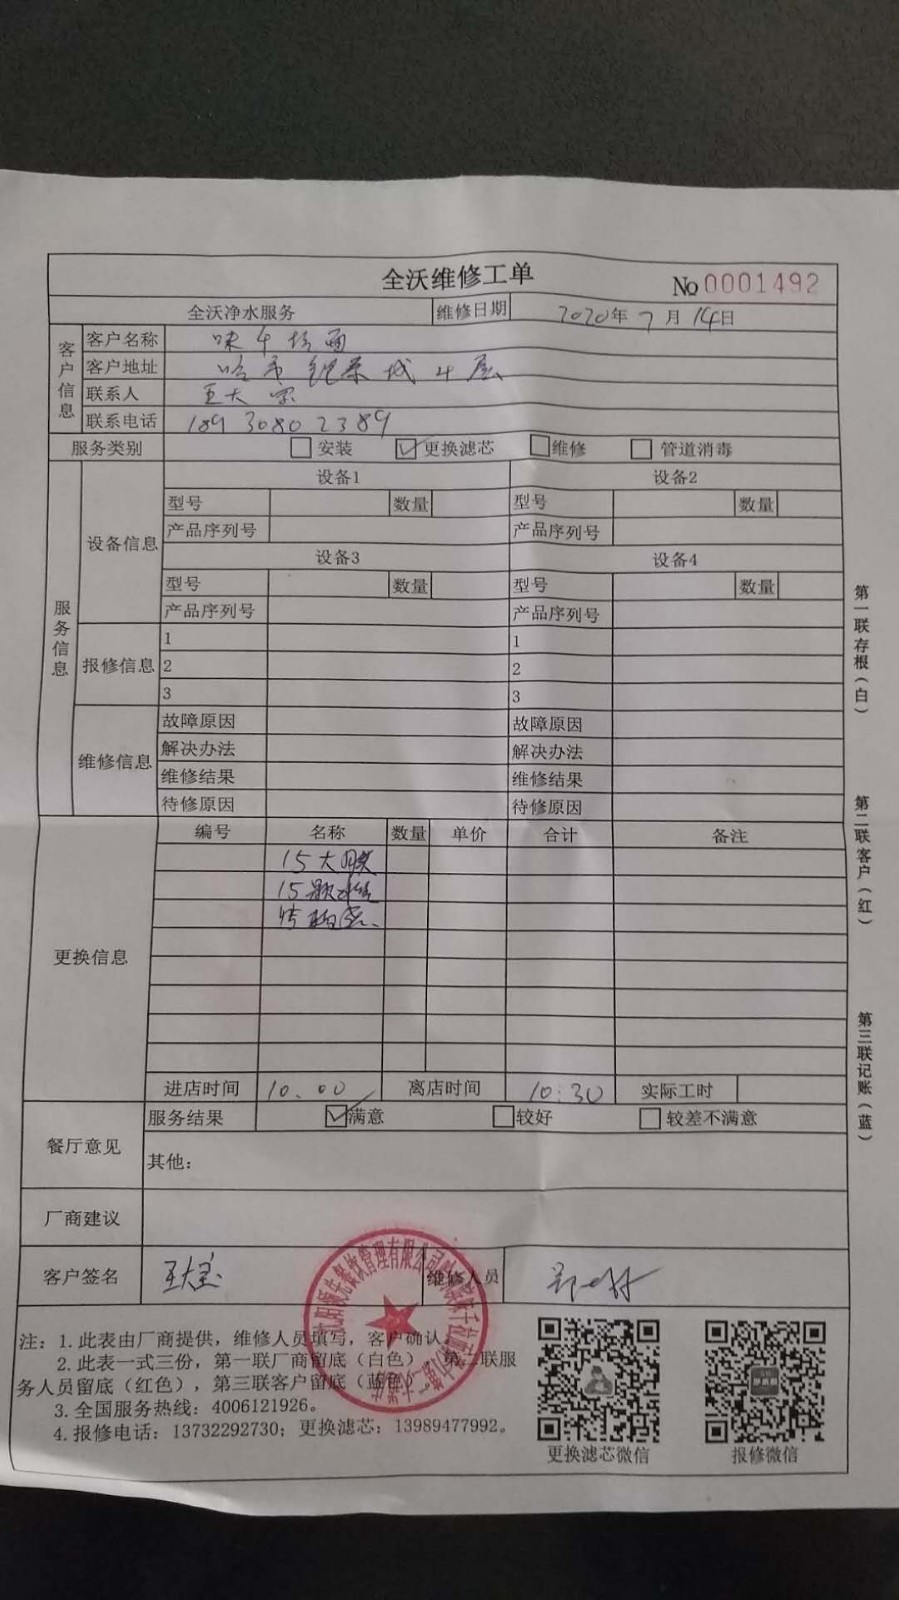 全沃维修工单
№ 0001492
全沃净水服务 维修日期 2020年 7 月 14日
客户信息
客户名称 味千拉面
客户地址 哈市 城 4层
联系人 王大宝
联系电话 189 3080 2389
服务类别 安装 更换滤芯 维修 管道消毒
服务信息
设备信息
设备1 设备2
型号 数量 型号 数量
产品序列号 产品序列号
设备3 设备4
型号 数量 型号 数量
产品序列号 产品序列号
报修信息
1 1
2 2
3 3
维修信息
故障原因 故障原因
解决办法 解决办法
维修结果 维修结果
待修原因 待修原因
更换信息
编号 名称 数量 单价 合计 备注
15大
15
进店时间 10:00 离店时间 10:30 实际工时
餐厅意见
服务结果 满意 较好 较差不满意
其他：
厂商建议
客户签名 王大宝 维修人员
注：1. 此表由厂商提供，维修人员填写，客户确认。
2. 此表一式三份，第一联厂商留底（白色），第二联服
务人员留底（红色），第三联客户留底（蓝色）。
3. 全国服务热线：4006121926。
4. 报修电话：13732292730；更换滤芯：13989477992。
更换滤芯微信
报修微信
第一联存根（白）
第二联客户（红）
第三联记账（蓝）